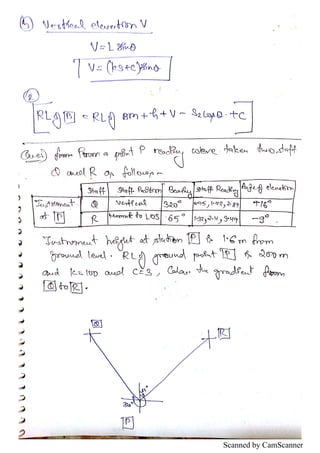 (4) Vertical elevation V
V = L Sinθ
V = (KS+C) Sinθ
(2)
RL of B = RL of BM + h + V - S2 Cosθ + C
from a point P reading were taken two staff
Q and R as follows -
Staff Staff Position Bearing Staff Reading Angle of elevation
Instrument Q Vertical 320° 1.40, +16°
at P R Normal to LOS 65° -9°
Instrument height at station P is 1.6 m from
ground level. RL of ground point P is 200m
and K=100 and C=3, the gradient from
Q to R.
Q
R
P
Scanned by CamScanner